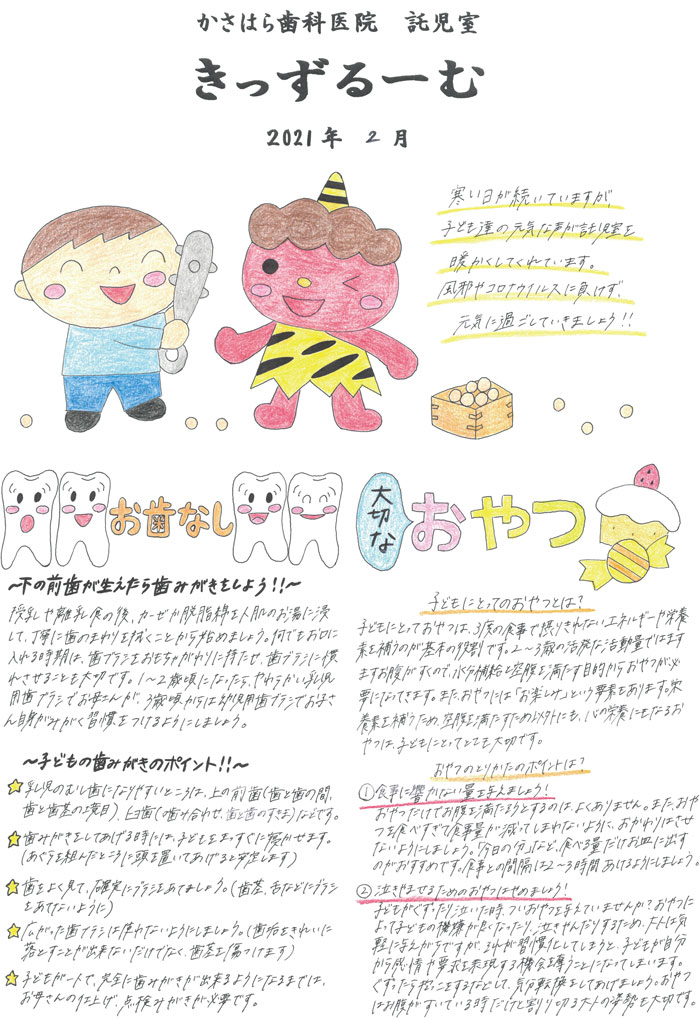 かさはら歯科医院 託児室
きっずるーむ
2021年 2月
寒い日が続いていますが、
子ども達の元気な声が託児室を
暖かくしてくれています。
風邪やコロナウイルスに負けず、
元気に過ごしていきましょう!!
お歯なし
～下の前歯が生えたら歯みがきをしよう!!～
授乳や離乳食の後、ガーゼか脱脂綿を人肌のお湯に浸
して、丁寧に歯のまわりを拭くことから始めましょう。何でもお口に
入れる時期は、歯ブラシをおもちゃがわりに持たせ、歯ブラシに慣
れさせることも大切です。1～2歳頃になったら、やわらかい乳児
用歯ブラシでお母さんが、3歳頃からは幼児用歯ブラシでお子さ
ん自身がみがく習慣をつけるようにしましょう。
～子どもの歯みがきのポイント!!～
乳児のむし歯になりやすいところは、上の前歯(歯と歯の間、
歯と歯茎の境目)、臼歯(の歯み合わせ、歯と歯のすきま)などです。
歯みがきをしてあげる時には、子どもをまっすぐに寝かせます。
(あぐらを組んだところに頭を置いてあげると安定します)
歯をよく見て、確実にブラシをあてましょう。(歯茎、舌などにブラシ
をあてないように)
広がった歯ブラシは使わないようにしましょう。(歯垢をきれいに
落とすことが出来ないだけでなく、歯茎を傷つけます)
子どもが一人で、完全に歯みがきが出来るようになるまでは、
お母さんの仕上げ、点検みがきが必要です。
大切な
おやつ
子どもにとってのおやつとは?
子どもにとっておやつは、3度の食事で摂りきれないエネルギーや栄養
素を補うのが基本の役割です。2～3歳の活発な活動量ではます
ますお腹がすくので、水分補給と空腹を満たす目的からおやつが必
要になってきます。また、おやつには「お楽しみ」という要素もあります。栄
養素を補うため、空腹を満たすため以外にも、心の栄養にもなるお
やつは、子どもにとってとても大切です。
おやつのとりかたのポイントは?
①食事に響かない量を与えましょう!
おやつだけでお腹を満たそうとするのは、よくありません。また、おや
つを食べすぎて食事量が減ってしまわないように、おかわりはさせ
ないようにしましょう。「今日の分」など、食べる量だけお皿に出す
のがおすすめです。食事との間隔は2～3時間あけるようにしましょう。
②泣きやませるためのおやつはやめましょう!
子どもがぐずったり泣いた時、ついおやつを与えていませんか?おやつに
よって子どもの機嫌が良くなったり、泣きやんだりするため、大人は気
軽に与えがちですが、それが習慣化してしまうと、子どもが自分
から感情や要求を表現する機会を奪うことになってしまいます。
ぐずったら抱っこをするなどして、気分転換をしてあげましょう。おやつ
はお腹がすいている時だけと割り切る大人の姿勢も大切です。